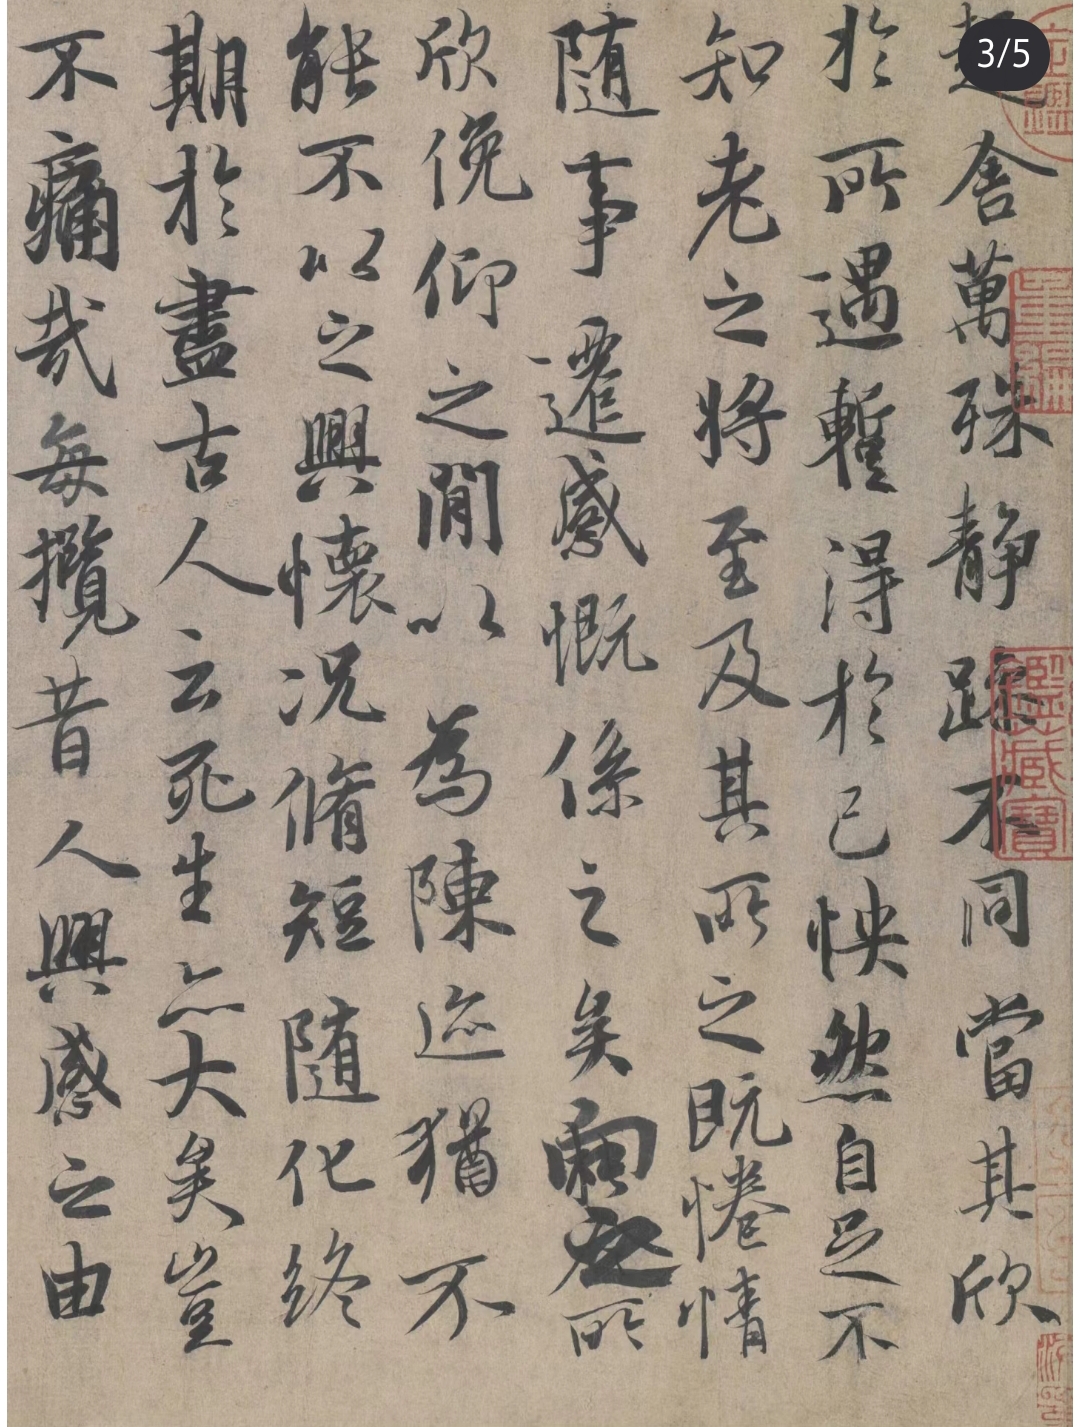 3/5
趣舍萬殊静躁不同當其欣
於所遇蹔得於己怏然自足不
知老之將至及其所之既惓情
随事遷感慨係之矣向之所
欣俛仰之閒以為陳迹猶不
能不以之興懷況脩短随化終
期於盡古人云死生亦大矣豈
不痛哉每攬昔人興感之由
定鑑
重編
鑑藏寶